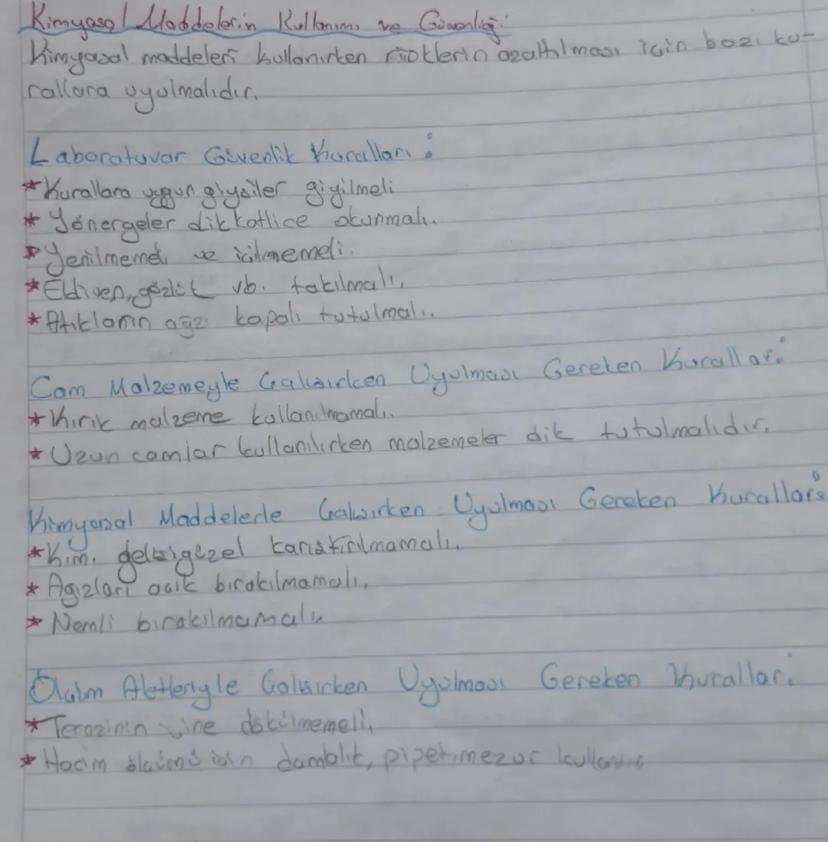 Kimyasal Maddelerin Kullanımı ve Güvenliği:
Kimyasal maddeleri kullanırken risklerin azaltılması için bazı ku-
rallara uyulmalıdır.
Laboratuvar Güvenlik Kuralları:
*Kurallara uygun giysiler giyilmeli
* Yönergeler dikkatlice okunmalı.
* Yenilmemeli ve içilmemeli.
*Eldiven, gözlük vb. takılmalı.
*Atıkların ağzı kapalı tutulmalı.
Cam Malzemeyle Çalışırken Uyulması Gereken Kurallar:
*Kırık malzeme kullanılmamalı.
* Uzun camlar kullanılırken malzemeler dik tutulmalıdır.
Kimyasal Maddelerle Çalışırken Uyulması Gereken Kurallar:
*Kim. gelişigüzel karıştırılmamalı.
* Ağızları açık bırakılmamalı.
* Nemli bırakılmamalı.
Ölçüm Aletleriyle Çalışırken Uyulması Gereken Kurallar:
*Terazinin içine dökülmemeli.
* Hacim ölçümü için damlalık, pipet, mezur